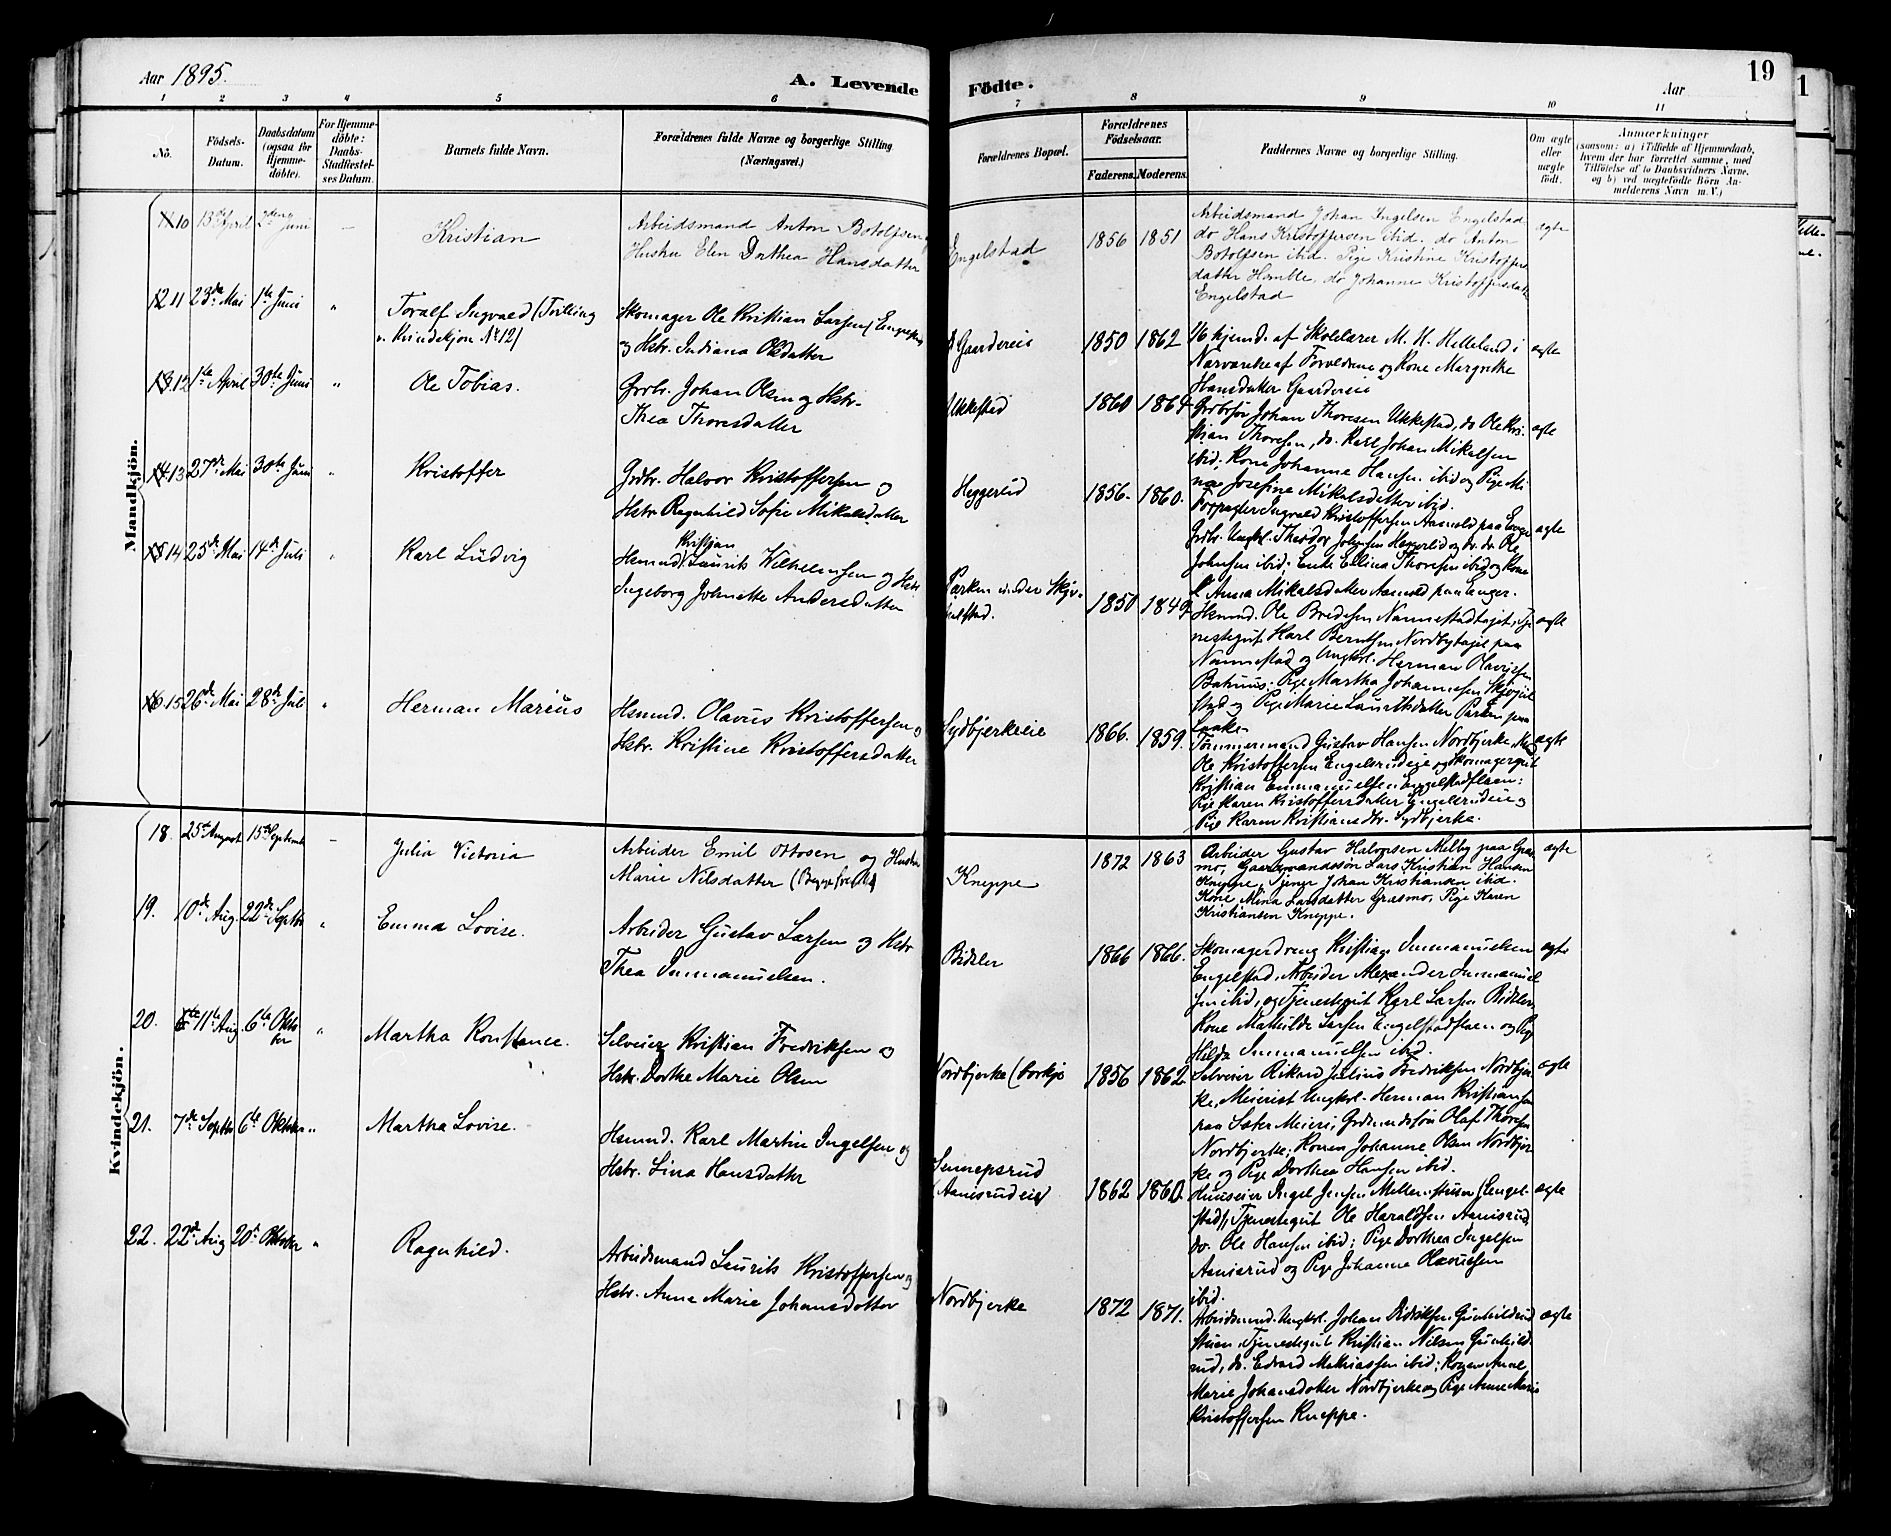 Aar 1895.
A. Levende Fødte.
Aar
19
1 2 3 4 5 6 7 8 9 10 11
No.
Fødsels-Datum.
Daabsdatum (ogsaa for Hjemme-døbte).
For Hjemme-døbte: Daabs-Stadfæstel-ses Datum.
Barnets fulde Navn.
Forældrenes fulde Navne og borgerlige Stilling (Næringsvei.)
Forældrenes Bopæl.
Forældrenes Fødselsaar.
Faderens. Moderens.
Faddernes Navne og borgerlige Stilling.
Om ægte eller uægte født.
Anmærkninger
(saasom: a) i Tilfælde af Hjemmedaab, hvem der har forrettet samme, med Tilføielse af to Daabsvidners Navne, og b) ved uægtefødte Børn An-melderens Navn m. V.)
Mandkjøn.
10 13de April 2den Juni — Kristian
Arbeidsmand Anton Botolfsen,
Hustru Elen Dorthea Hansdatter
Engelstad 1856 1851
Arbeidsmand Johan Ingelsen Engelstad
do Hans Kristoffersen ibid. do Anton
Botolfsen ibid. Pige Kristine Kristoffers
datter Homble, do Johanne Kristoffersdatter
Engelstad
ægte
11 23de Mai 1ste Juni " Toralf Ingvald (Tvilling
v. Kvindekjøn № 12)
Skomager Ole Kristian Larsen
og Hstr. Indiana Olsdatter
Gaardereie 1850 1862
hjemd. af Skolelærer M. H. Helleland i
Nærværelse af Forældrene og Kone Margrethe
Hansdatter Gaardereie
ægte
12 1ste April 30te Juni " Ole Tobias.
Grdbr. Johan Olsen og Hstr.
Thea Thoresdatter
Ukkestad 1860 1864
Grdbrsøn Johan Thoresen Ukkestad, do Ole Kri-
stian Thoresen, do. Karl Johan Mikalsen
ibid; Kone Johanne Hansen ibid og Pige Mi-
na Josefine Mikalsdatter ibid.
ægte
13 27de Mai 30te Juni " Kristoffer
Grdbr. Halvor Kristoffersen og
Hstr. Ragnhild Sofie Mikalsdatter
Heggerlid 1856. 1860.
Forpagter Ingvald Kristoffersen Aamold paa Enger
Grdbr. Ungkl. Theodor Johnsen Heggerlid og do. do. Ole
Johnsen ibid; Enke Ellina Thoresen ibid og Kone
Anna Mikalsdatter Aamold paa Enger.
ægte
14 25de Mai 14de Juli " Karl Ludvig
Kristian
Hsmnd. Laurits Wilhelmsen og Hstr.
Ingeborg Johnette Andersdatter
Parken under Skjø-
talstad. 1850 1849
Hsmnd. Ole Bredesen Nannestadtajet, Tje
nestegut Karl Berntsen Nordbytajet paa
Nannestad og Ungkrl. Herman Olavesen
Bahuus; Pige Martha Johannesen
og Pige Marie Lauritsdatter Parken paa
ægte
15 26de Mai 28de Juli " Herman Marius
Hsmnd. Olavus Kristoffersen og
Hstr. Kristine Kristoffersdatter
Sydbjerkeeie 1866. 1859.
Tømmermand Gustav Hansen Nordbjerke,
Ole Kristoffersen Engelsrudeie og Skomagergut
Kristian Emmanuelsen Engelstadflaen;
Pige Karen Kristoffersdatter Engelsrudeie og
Pige Karen Kristiansdtr. Sydbjerke.
ægte
Kvindekjøn.
18. 25de August 15de September — Julia Victoria
Arbeider Emil Ottosen og Hustru
Marie Nilsdatter
Kneppe 1872 1863
Arbeider Gustav Halvorsen Melby paa Gras-
mo, Gaardmandssøn Lars Kristian Hansen
Kneppe, Tjener Johan Kristiansen ibid.
Kone Mina Larsdatter Grasmo, Pige Karen
Kristiansen Kneppe.
ægte
19. 10de Aug. 22de Septbr " Emma Lovise.
Arbeider Gustav Larsen og Hstr.
Thea Immanuelsen.
Bidsler 1866 1866.
Skomagerdreng Kristian Immanuelsen
Engelstad, Arbeider Alexander Immanuel
sen ibid, og Tjenestegut Karl Larsen Bidsler
Kone Mathilde Larsen Engelstadflaen og Pige
Hilda Immanuelsen ibid.
ægte
20. 11te Aug. 6te Okto
br " Martha Konstance.
Selveier Kristian Fredriksen og
Hstr. Dorthe Marie Olsen
Nordbjerke 1856 1862
Selveier Rikard Julius Fredriksen Nordbjer
ke, Meierist Ungkrl. Herman Kristiansen
paa Sæter Meieri, Grdmandssøn Olaf Thoresen
Nordbjerke; Konen Johanne Olsen Nordbjer
ke og Pige Dorthea Hansen ibid.
ægte
21. 7de Septbr 6te Oktober " Martha Lovise.
Hsmnd. Karl Martin Ingelsen og
Hstr. Lina Hansdatter
Sennepsrud
(Aanisrudeie) 1862 1860
Huuseier Ingel Jensen Mellemstuen (Engel-
stad), Tjenestegut Ole Haraldsen Aanisrud,
do. Ole Hansen ibid; Pige Dorthea Ingelsen
Aanisrud og Pige Johanne Olavusen
ibid.
ægte
22. 22de Aug 20de Oktober " Ragnhild.
Arbeidsmand Laurits Kristoffersen og
Hstr. Anne Marie Johansdatter
Nordbjerke 1872 1871.
Arbeidsmnd. Ungkrl. Johan Didriksen Gunhildrud
stuen, Tjenestegut Kristian Nilsen Gunhild-
rud, do. Edvard Mathiassen ibid; Konen Anne
Marie Johansdatter Nordbjerke og Pige Anne Marie
Kristoffersen Kneppe.
ægte